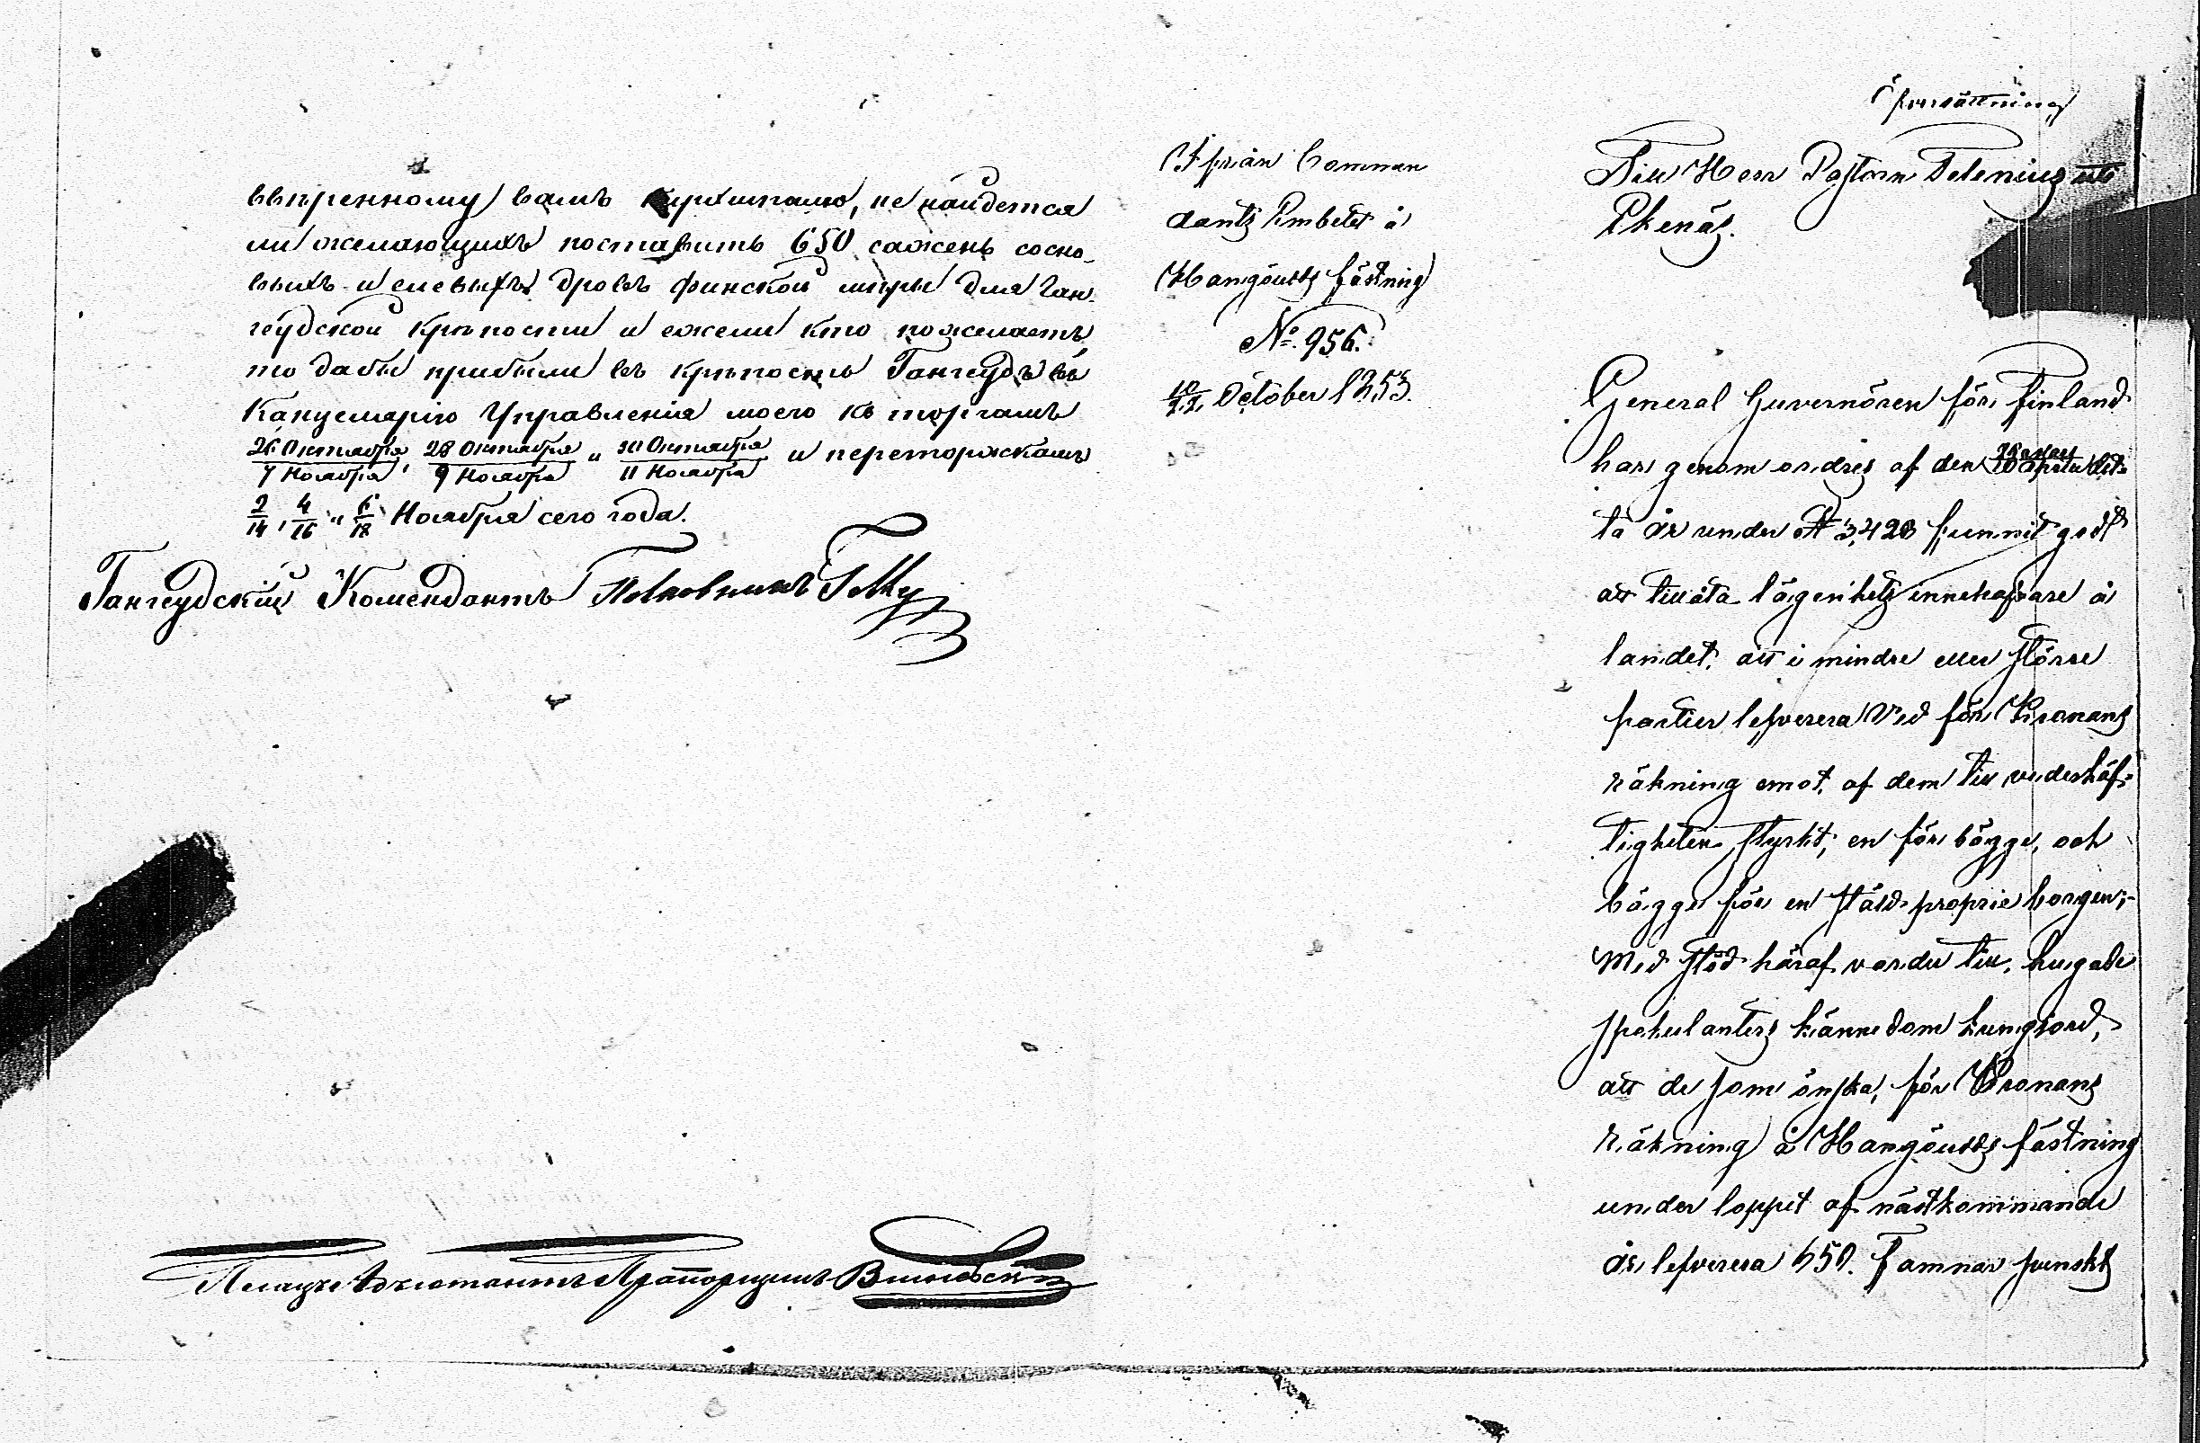 ввѣренному вамъ кирхшпилю, не найдется
ли желающихъ поставить 650 сажень сосно-
выхъ и елевыхъ дровъ финской мѣры для Ган-
геудской крѣпости и ежели кто пожелаетъ
то дабы прибыли въ крѣпость Гангеудъ въ
Канцелярію Управленія моего къ торгамъ
26 Октября/7 Ноября, 28 Октября/9 Ноября и 30 Октября/11 Ноября и переторжкамъ
2/14, 4/16 и 6/18 Ноября сего года.
Гангеудскій Комендантъ Полковникъ
Плацъ Адъютантъ Прапорщикъ
Ifrån Comman
dants Embetet å
Hangöudds fästning
No. 956.
10/22 October 1853.
Öfversättning
Till Herr Pastorn Telenius uti
Ekenäs.
General Guvernören för Finland
har genom ordres af den det-
ta år under No 3,428 funnit godt
att tillåta lägenhets innehafvare å
landet, att i mindre eller större
partier lefverera Ved för Kronans
räkning emot, af dem till vederhäf-
tigheten styrkt, en för bägge, och
bägge för en stäld proprie borgen;-
Med stöd häraf varder till hugade
spekulanters kännedom kungjord,
att de som önska, för Kronans
räkning å Hangöudds fästning
under loppet af nästkommande
år, lefverera 650. Famnar finskt